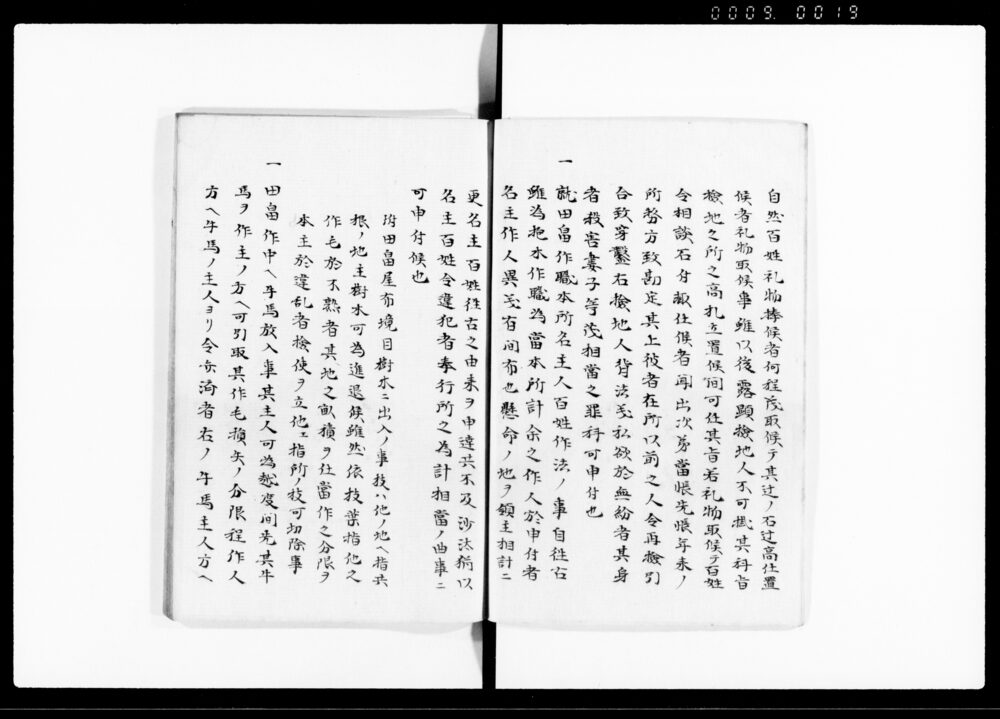 0009. 0019
自然百姓礼物捧候者何程茂取候テ其辻ノ石辻高仕置
候者礼物取候事雖以後露顕検地人不可遁其科旨
検地之所之高札立置候間可任其旨若礼物取候テ百姓
令相談石分 仕候者聞出次第当帳先帳年来ノ
所務方致勘定其上彼者在所以前之人令再検引
合致穿鑿右検地人背法茂私欲於無紛者其身
者殺害妻子等茂相当之罪科可申付也
一 就田畠作職本所名主人百姓作法ノ事自往古
雖為抱来作職為当本所計余之作人於申付者
名主作人異 有間布也懸命ノ地ヲ領主相計ニ
更名主百姓往古之由来ヲ申達共不及沙汰猶以
名主百姓令違犯者奉行所之為計相当ノ曲事ニ
可申付候也
附田畠屋布境目樹木ニ出入ノ事枝ハ他ノ地ヘ指共
根ノ地主樹木可為進退候雖然依枝葉指他之
作毛於不熟者其地之畝積ヲ仕当作之分限ヲ
本主於違乱者検使ヲ立他エ指所ノ枝可切除事
一 田畠作中ヘ牛馬放入事其主人可為越度間先其牛
馬ヲ作主ノ方ヘ可引取其作毛損失ノ分限程作人
方ヘ牛馬ノ主人ヨリ令 者右ノ牛馬主人方ヘ